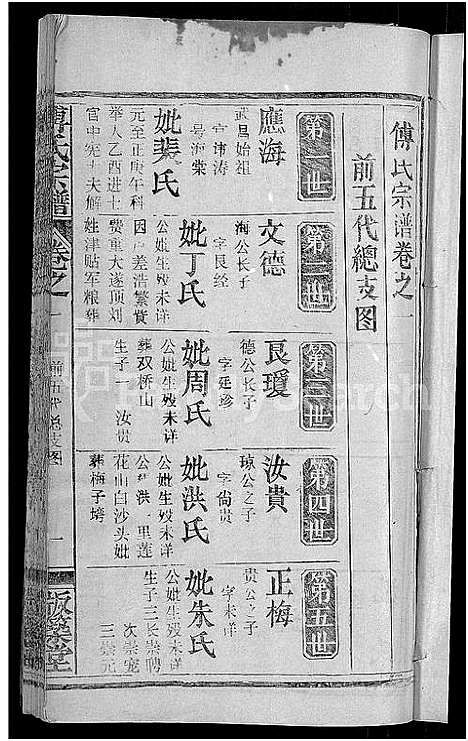 傅氏宗谱卷之一
前五代總支图
第一世
應海
武昌始祖
官讳涛
号海棠
妣裴氏
元至正庚午科
举人乙酉进士
官中宪大夫解
第二世
文德
海公长子
字良经
妣丁氏
公妣生殁未详
因户差浩繁赀
费重大遂顶刘
姓津贴军粮葬
第三世
良瓊
德公长子
字廷珍
妣周氏
公妣生殁未详
葬双桥山
生子一 汝贵
第四世
汝貴
琼公之子
字尚贵
妣洪氏
公妣生殁未详
公葬洪里莲
花山白沙头妣
葬梅子塆
第五世
正梅
贵公之子
字未详
妣朱氏
公妣生殁未详
生子三长崇聘
次崇宠
三崇元
傅氏宗譜
卷之一
前五代总支图
一
版築堂